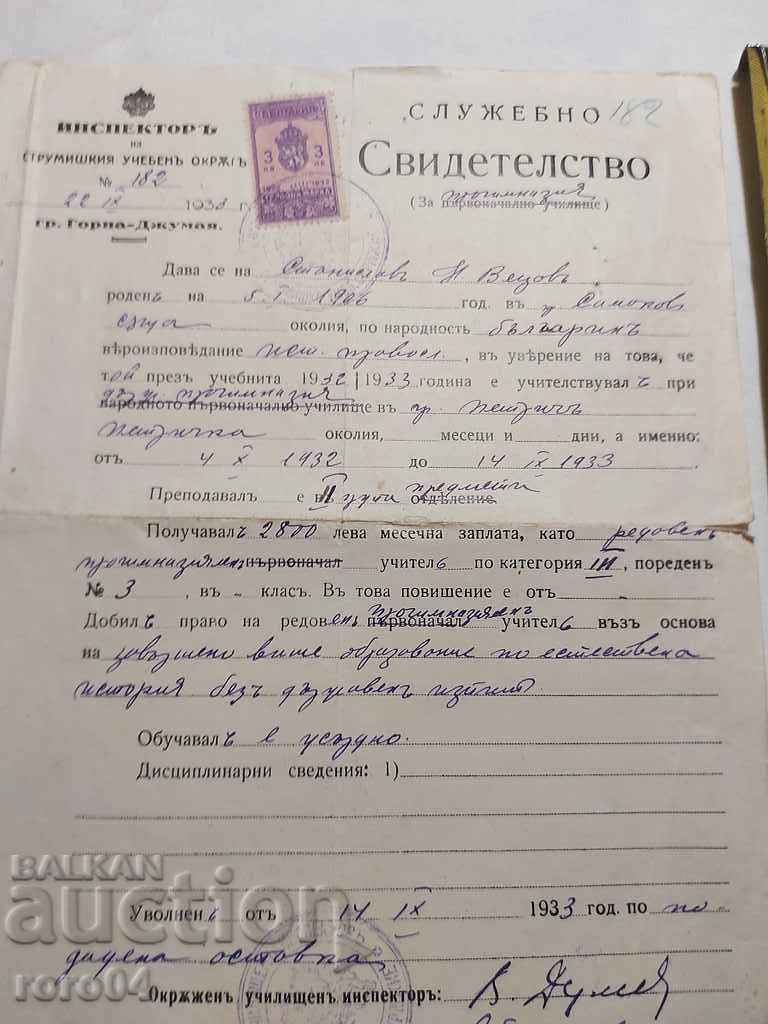 ИНСПЕКТОРЪ
на
СТРУМИШКИЯ УЧЕБЕНЪ ОКРѪГЪ
№ 182
22 IX 1933 г.
гр. Горна-Джумая.
3 лв 3 лв
СЛУЖЕБНО 182
Свидетелство
прогимназия
(За първоначално училище)
Дава се на Станиславъ Н. Вецовъ
роденъ на 5 I 1906 год. въ гр. Самоков
сѫща околия, по народность българинъ
вѣроизповѣдание изт. правосл., въ уверение на това, че
той презъ учебнита 1932 | 1933 година е учителствувалъ при
държ. прогимназия
народното първоначално училище въ гр. Петричъ
Петричка околия, месеци и дни, а именно:
отъ 4 X 1932 до 14 IX 1933
Преподавалъ е въ II група предмети отдѣление.
Получавалъ 2800 лева месечна заплата, като редовенъ
прогимназиаленъ първоначал учитель по категория III, пореденъ
№ 3, въ - класъ. Въ това повишение е отъ
прогимназиаленъ
Добилъ право на редовенъ първоначал учитель възъ основа
на завършено висше образование по естествена
история безъ държавенъ изпит
Обучавалъ е усърдно.
Дисциплинарни сведения: 1)
BALKAN
auction
Уволненъ отъ 14 IX 1933 год. по по
дадена оставка
roro04
Окрѫженъ училищенъ инспекторъ: